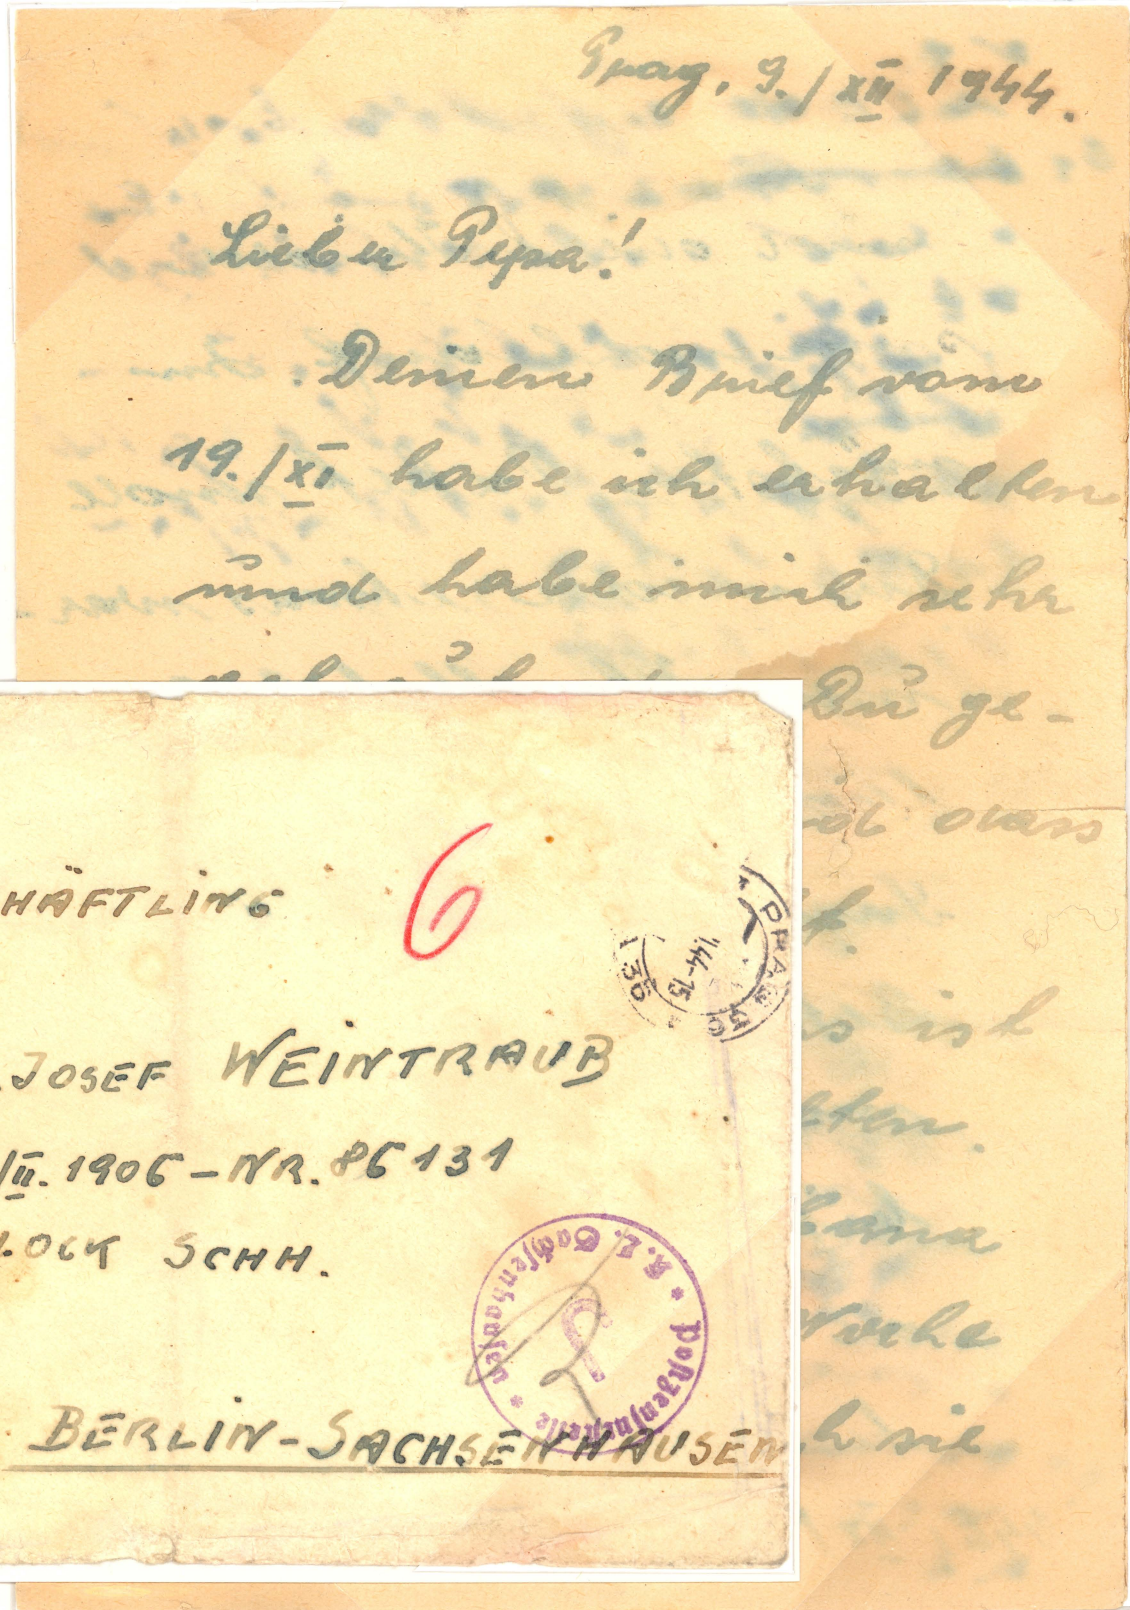 Prag, 9./XII 1944.
Lieber Pepa!
Deinen Brief vom
19./XI habe ich erhalten
und habe mich sehr
Du ge-
dass
ist
Hana
Woche
sie
HÄFTLING
6
JOSEF WEINTRAUB
/II. 1906 – NR. 86131
LOCK SCHH.
BERLIN-SACHSENHAUSEN
PRAG
136
44-15
* Postzensurstelle * K. L. Sachsenhausen